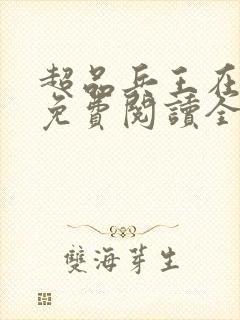 超品兵王在
免費閱讀全
雙海芽生